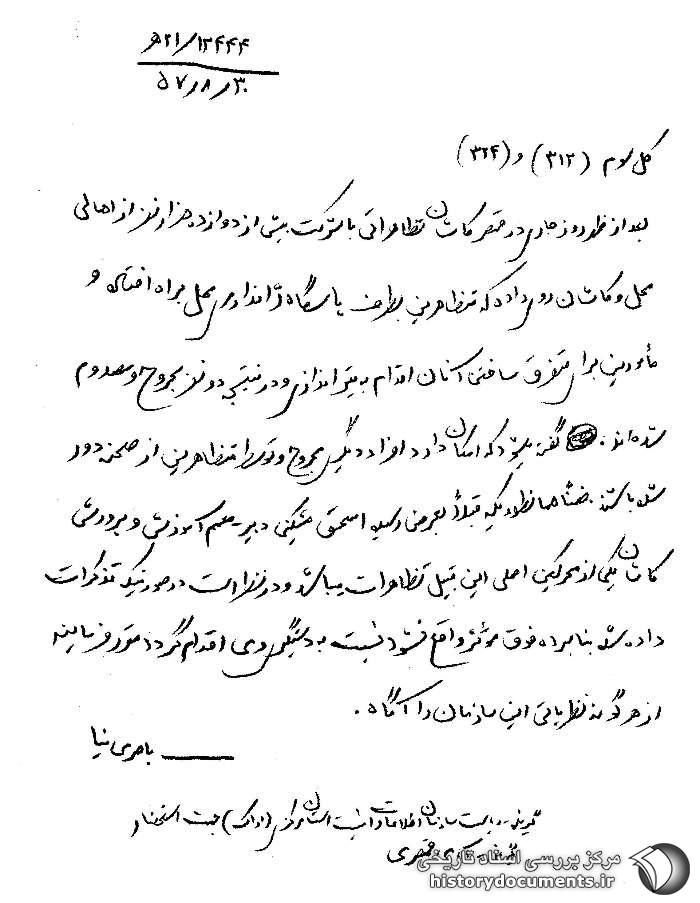 ۲۱/۱۲۴۴۴ه‍
۵۷/۸/۳۰
کل سوم (۳۱۲) و (۳۲۴)
بعد از ظهر روز جاری در قمصر کاشان تظاهراتی با شرکت بیش از دوازده هزار نفر از اهالی
محل و کاشان روی داده که متظاهرین بطرف پاسگاه ژاندارمری محل براه افتاده و
مأمورین برای متفرق ساختن آنان اقدام به تیراندازی و در نتیجه دو نفر مجروح و مصدوم
شده‌اند. گفته میشود که امکان دارد افراد دیگری مجروح و توسط متظاهرین از صحنه دور
شده باشند. ضمناً همانطوریکه قبلاً بعرض رسیده اسحق دبیر آموزش و پرورش
کاشان یکی از محرکین اصلی این قبیل تظاهرات میباشد و در نظر است در صورتیکه تذکرات
داده شده بنامبراه فوق مؤثر واقع نشود نسبت به دستگیری وی اقدام گردد مقرر فرمایند
از هرگونه نظریاتی این سازمان را آگاه.
باصری نیا
گیرنده ریاست سازمان اطلاعات و امنیت استان مرکزی (اراک) جهت استحضار
قمصری
مرکز بررسی اسناد تاریخی
historydocuments.ir